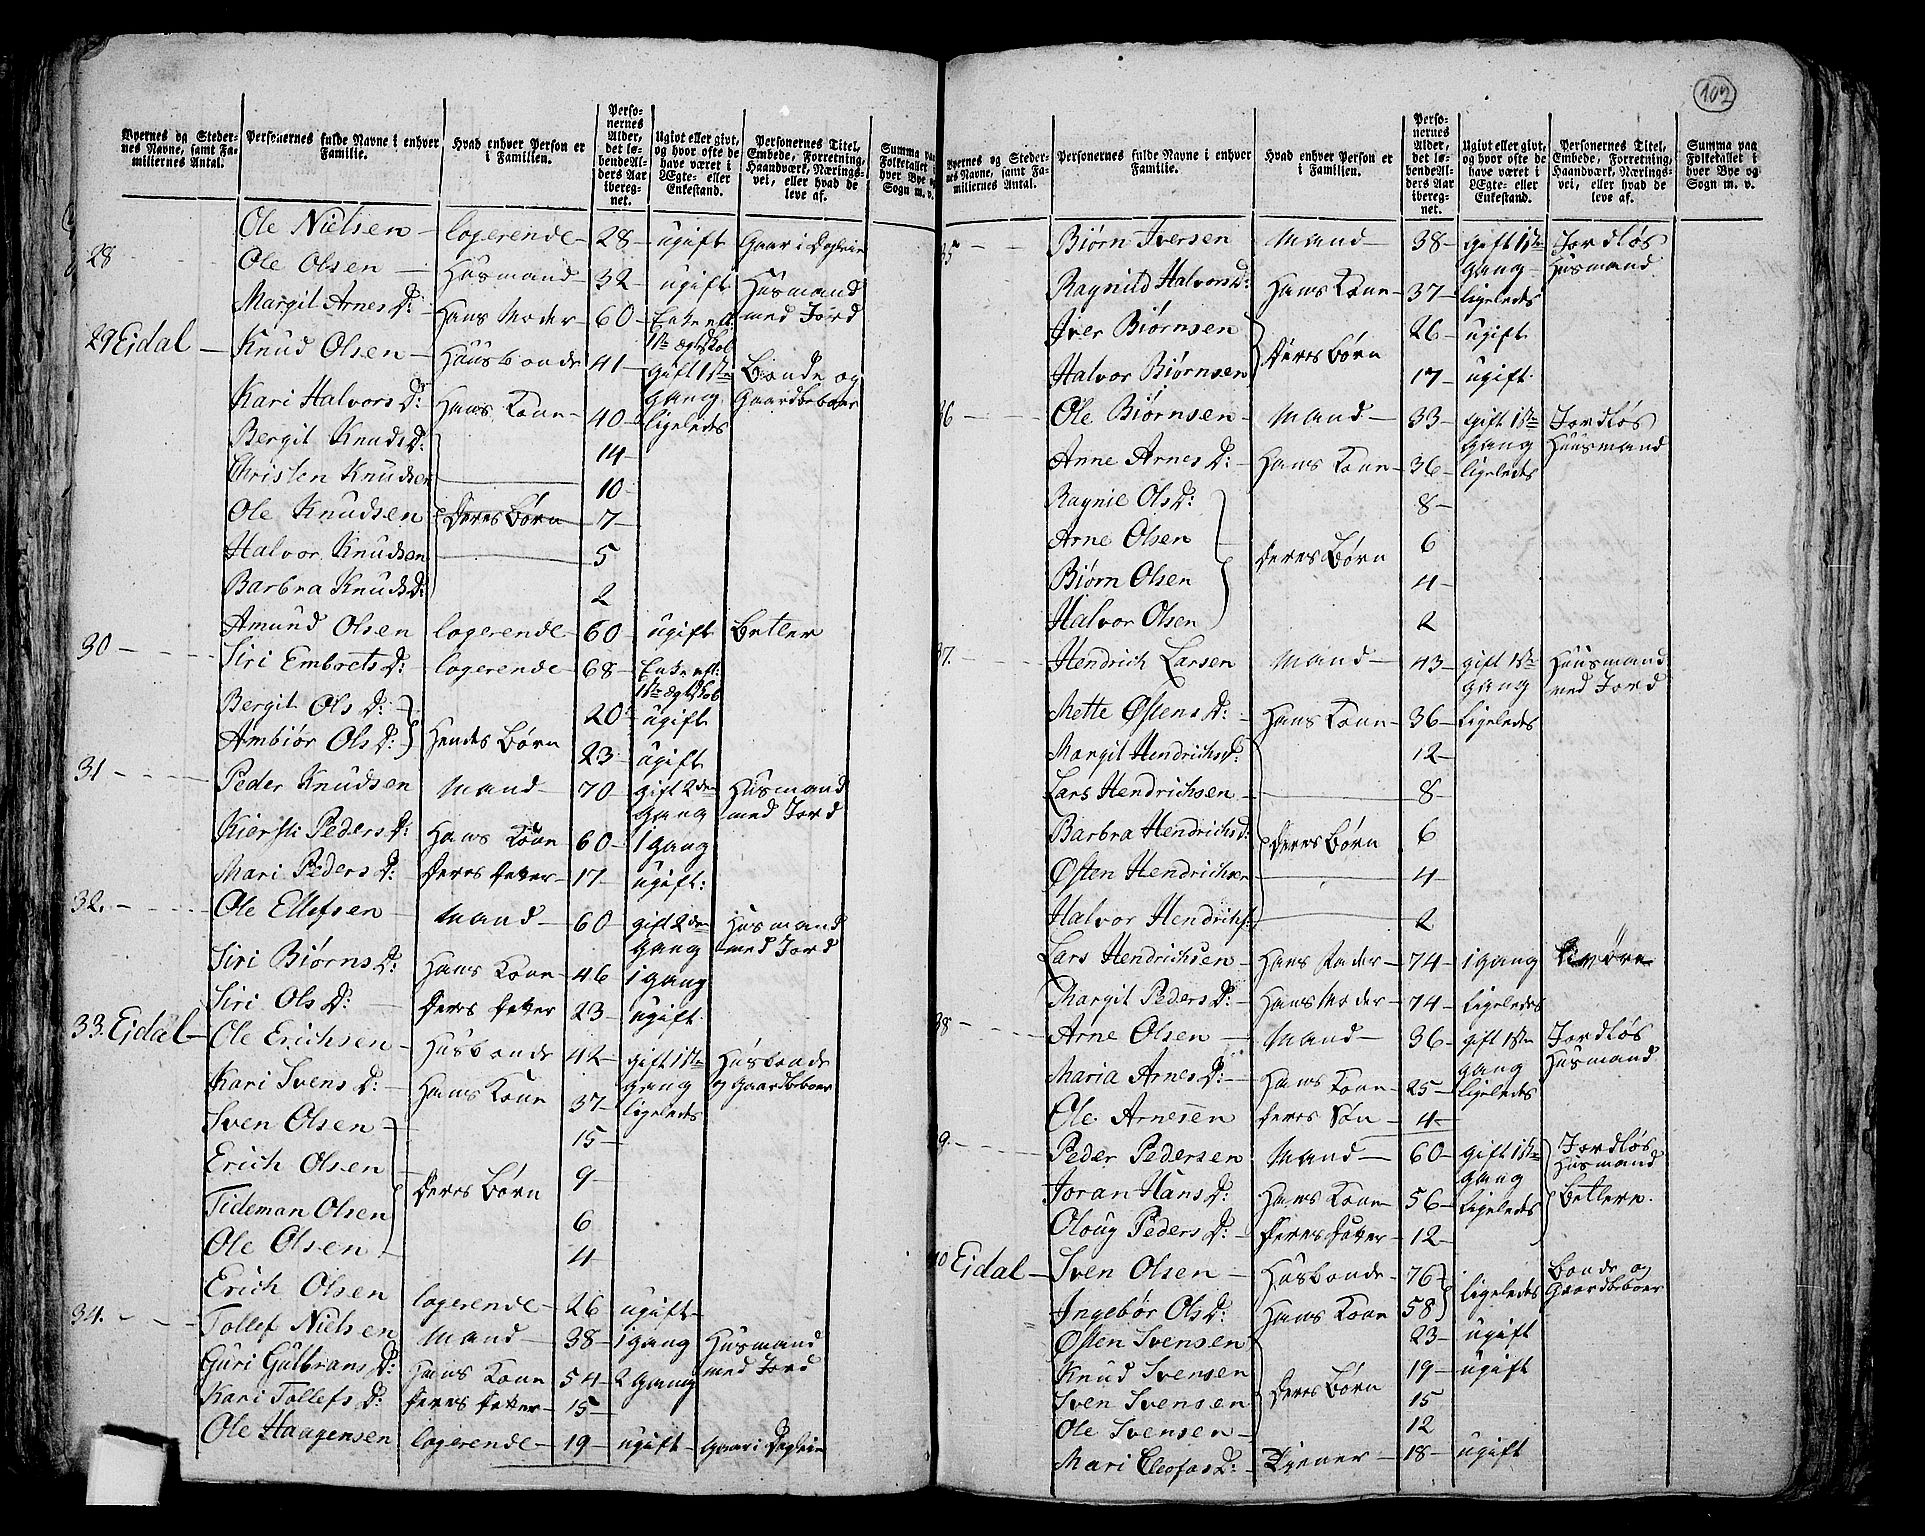 107
Byernes og Stedernes Navne, samt Familiernes Antal. Personernes fulde Navne i enhver Familie. Hvad enhver Person er i Familien. Personernes Alder, det løbende Alders Aar iberegnet. Ugivt eller givt, og hvor ofte de have været i Ægte- eller Enkestand. Personernes Titel, Embede, Forretning, Haandværk, Næringsvei, eller hvad de leve af. Summa paa Folketallet i hver Bye og Sogn m. v.
Ole Nielsen logerende 28 ugift Gaar i Dagleie
28 Ole Olsen Husmand 32 ugift Husmand med Jord
Margit Arnes D: Hans Moder 60 Enke eft: 1ste ægteskab
29 Eidal Knud Olsen Huusbonde 41 gift 1ste gang Bonde og Gaardbeboer
Kari Halvors D: Hans Kone 40 ligeledes
Bergit Knuds D: 14
Christen Knudsen 10
Ole Knudsen Deres Børn 7
Halvor Knudsen 5
Barbra Knuds D: 2
Amund Olsen logerende 60 ugift Betler
30 Siri Embrets D: logerende 68 Enke eft: 1ste ægteskab
Bergit Ols D: 20 ugift
Ambiør Ols D: Hendes Børn 23 ugift
31 Peder Knudsen Mand 70 gift 2den gang Husmand med Jord
Kiersti Peders D: Hans Kone 60 1 gang
Mari Peders D: Deres Datter 17 ugift:
32. Ole Ellefsen Mand 60 gift 2den gang Husmand med Jord
Siri Biørns D: Hans Kone 46 1 gang
Siri Ols D: Deres Datter 23 ugift
33. Eidal Ole Erichsen Husbonde 42 gift 1ste gang Husbonde og Gaardbeboer
Kari Svens D: Hans Kone 37 ligeledes
Sven Olsen 15
Erich Olsen 9
Tideman Olsen Deres Børn 6
Ole Olsen 4
Erich Olsen logerende 26 ugift
34. Tollef Nielsen Mand 38 1 gang Husmand med Jord
Guri Gulbrans D: Hans Kone 54 2 gang
Kari Tollefs D: Deres Datter 15
Ole Haagensen logerende 19 ugift Gaar i Dagleie
Byernes og Stedernes Navne, samt Familiernes Antal. Personernes fulde Navne i enhver Familie. Hvad enhver Person er i Familien. Personernes Alder, det løbende Alders Aar iberegnet. Ugivt eller givt, og hvor ofte de have været i Ægte- eller Enkestand. Personernes Titel, Embede, Forretning, Haandværk, Næringsvei, eller hvad de leve af. Summa paa Folketallet i hver Bye og Sogn m. v.
35 Biørn Iversen Mand 38 gift 1ste gang Jordløs Husmand
Ragnild Halvors D: Hans Kone 37 ligeledes
Iver Biørnsen Deres Børn 26 ugift
Halvor Biørnsen 17 ugift
36 Ole Biørnsen Mand 33 gift 1ste gang Jordløs Huusmand
Anne Arnes D: Hans Kone 36 ligeledes
Ragnie Ols D: 8
Arne Olsen 6
Biørn Olsen Deres Børn 4
Halvor Olsen 2
37. Hendrich Larsen Mand 43 gift 1ste gang Huusmand med Jord
Mette Østens D: Hans Kone 36 ligeledes
Margit Hendrichs D: 12
Lars Hendrichsen 8
Barbra Hendrichs D: Deres Børn 6
Østen Hendrichsen 4
Halvor Hendrichs: 2
Lars Hendrichsen Hans Fader 74 1 gang
Margit Peders D: Hans Moder 74 ligeledes
38 Arne Olsen Mand 36 gift 1ste gang Jordløs Husmand
Maria Arnes D: Hans Kone 25 ligeledes
Ole Arnesen Deres Søn 4
9. Peder Pedersen Mand 60 gift 1ste gang Jordløs Husmand
Joran Hans D: Hans Kone 56 ligeledes Betlere.
Oloug Peders D: Deres Datter 12
40 Eidal Sven Olsen Husbonde 76 ligeledes Bonde og Gaardbeboer
Ingebør Ols D: Hans Kone 58
Østen Svensen 23 ugift
Knud Svensen 19 ugift
Sven Svensen Deres Børn 15
Ole Svensen 12
Mari Cleofas D: Tiener 18 ugift